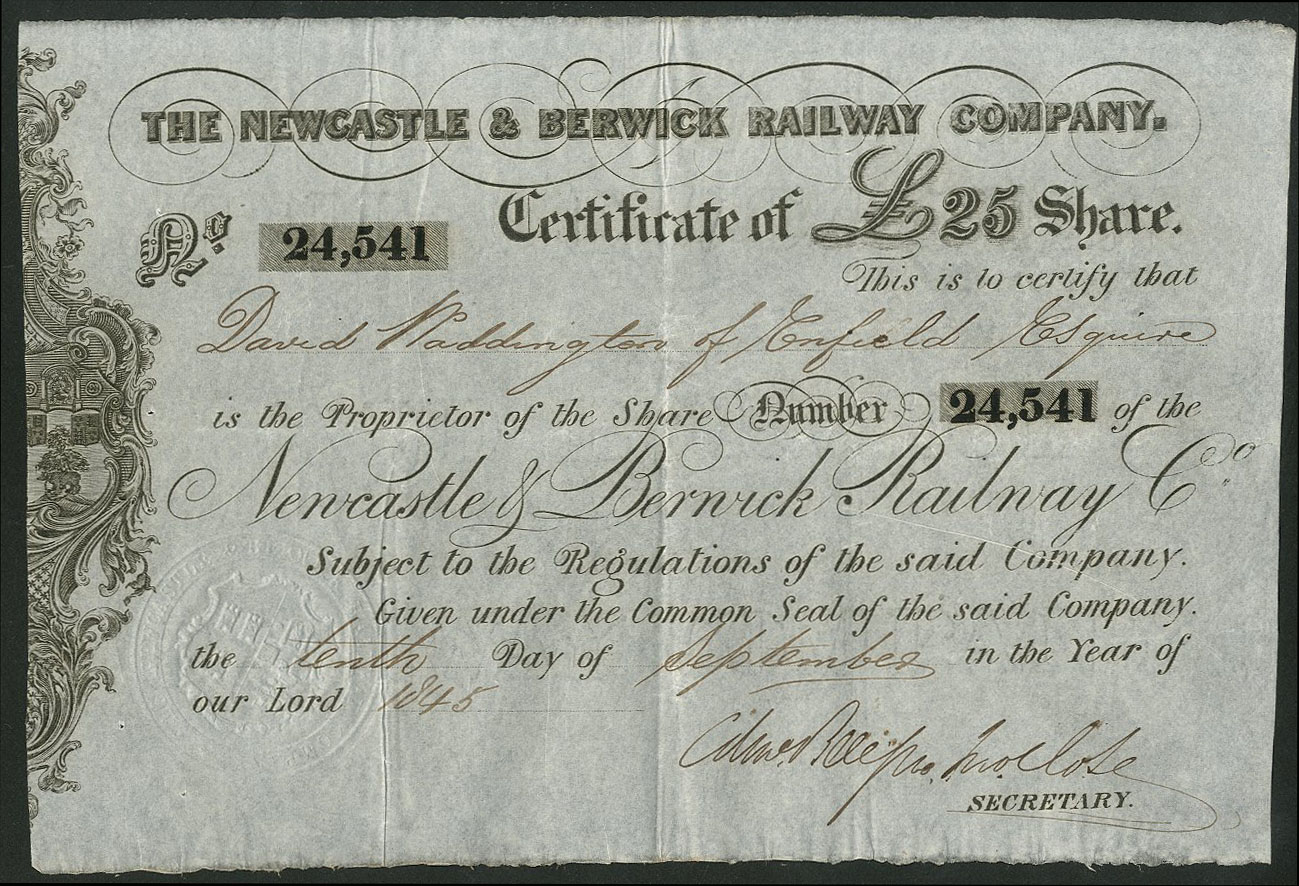 THE NEWCASTLE & BERWICK RAILWAY COMPANY.
Certificate of £25 Share.
No 24,541
This is to certify that
David Waddington of Enfield Esquire
is the Proprietor of the Share Number 24,541 of the
Newcastle & Berwick Railway Co.
Subject to the Regulations of the said Company.
Given under the Common Seal of the said Company.
the tenth Day of September in the Year of
our Lord 1845
Jno. Close
SECRETARY.